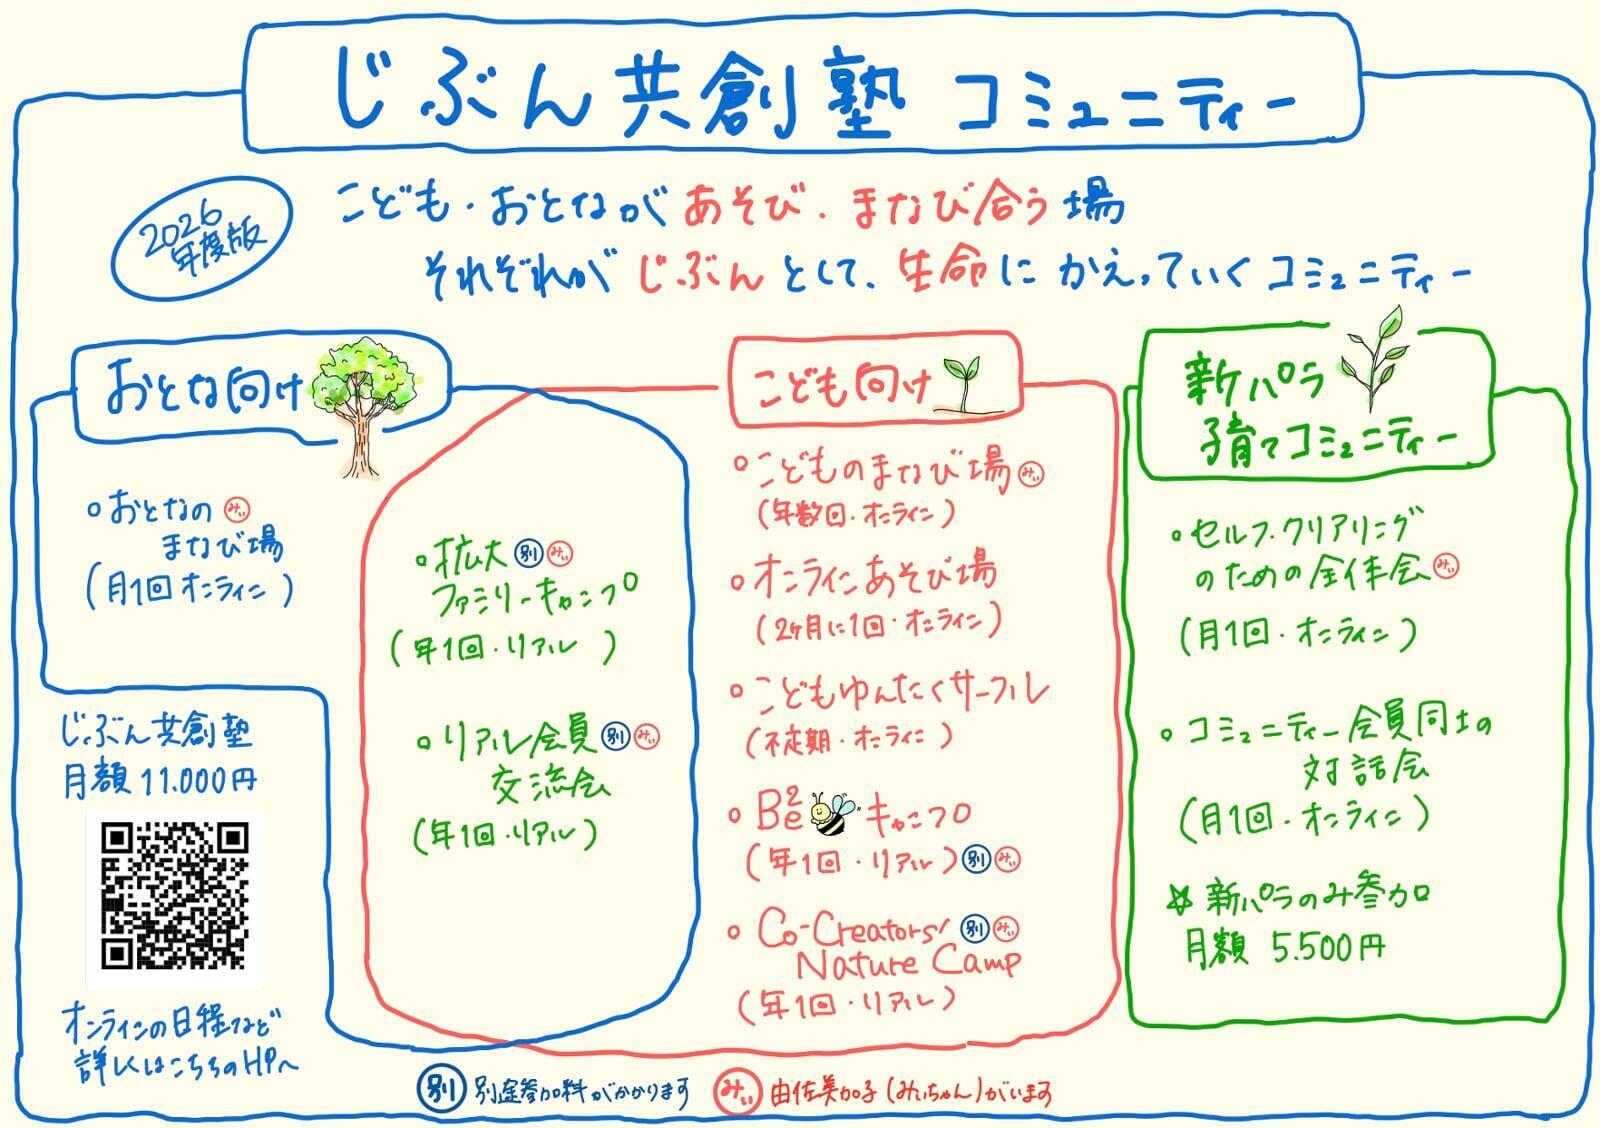 じぶん共創塾 コミュニティー
2026
年度版
こども・おとなが あそび・まなび合う 場
それぞれが じぶんとして、生命に かえっていく コミュニティー
おとな向け
・おとなの みぃ
まなび場
(月1回 オンライン)
じぶん共創塾
月額 11.000円
オンラインの日程など
詳しくはこちらのHPへ
・拡大 別 みぃ
ファミリーキャンプ
(年1回・リアル)
・リアル会員 別 みぃ
交流会
(年1回・リアル)
こども向け
・こどものまなび場 みぃ
(年数回・オンライン)
・オンラインあそび場
(2ヶ月に1回・オンライン)
・こどもゆんたくサークル
(不定期・オンライン)
・Bee² キャンプ
(年1回・リアル) 別 みぃ
・Co-Creators' 別 みぃ
Nature Camp
(年1回・リアル)
新パラ
子育てコミュニティー
・セルフ・クリアリング
のための全体会 みぃ
(月1回・オンライン)
・コミュニティー会員同士の
対話会
(月1回・オンライン)
☆新パラのみ参加
月額 5.500円
別 別途参加料がかかります
みぃ 由佐美加子(みぃちゃん)がいます